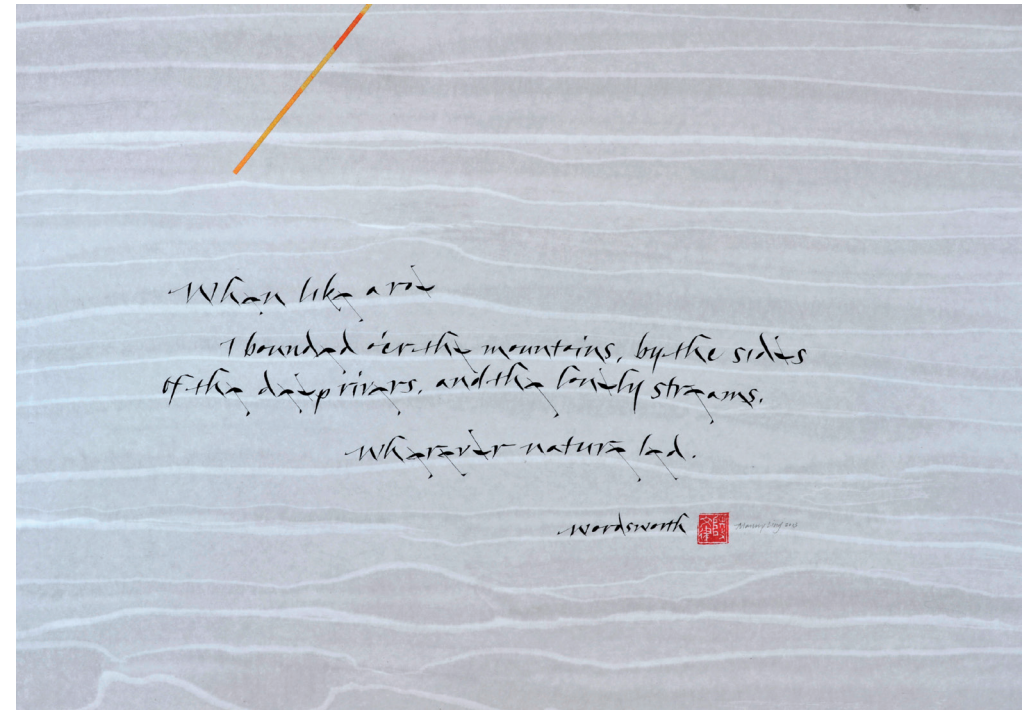 When like a roe
I bounded o'er the mountains, by the sides
of the deep rivers, and the lonely streams,
Wherever nature led.
Wordsworth